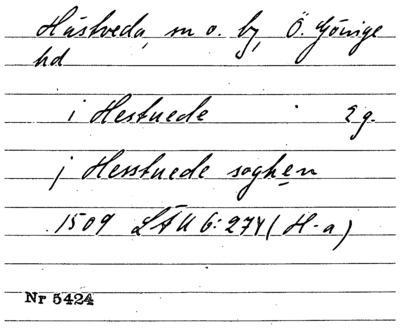 Hästveda, sn o. by, Ö. Göinge
hd
i Hestuede 2 g.
j Hesstuede soghen
1509 LÄU 6:274 (H-a)
Nr 5424